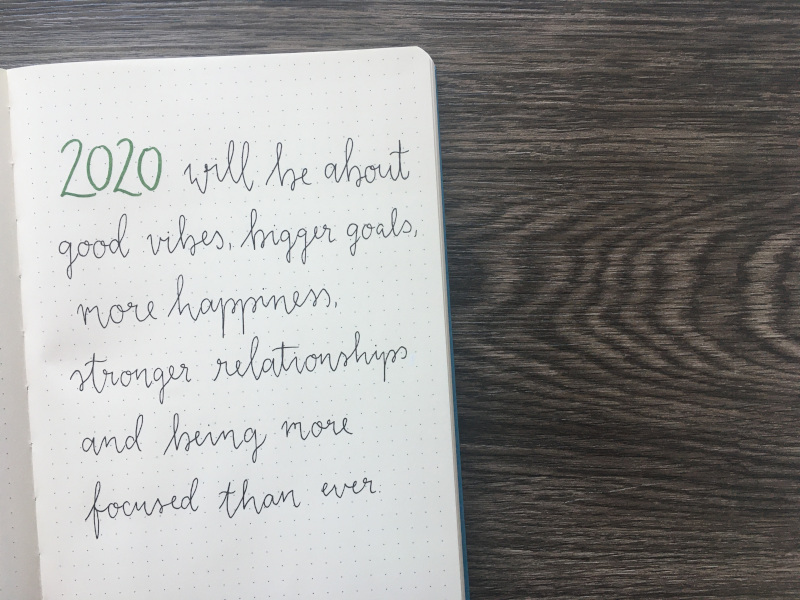 2020 will be about
good vibes, bigger goals,
more happiness,
stronger relationships
and being more
focused than ever.